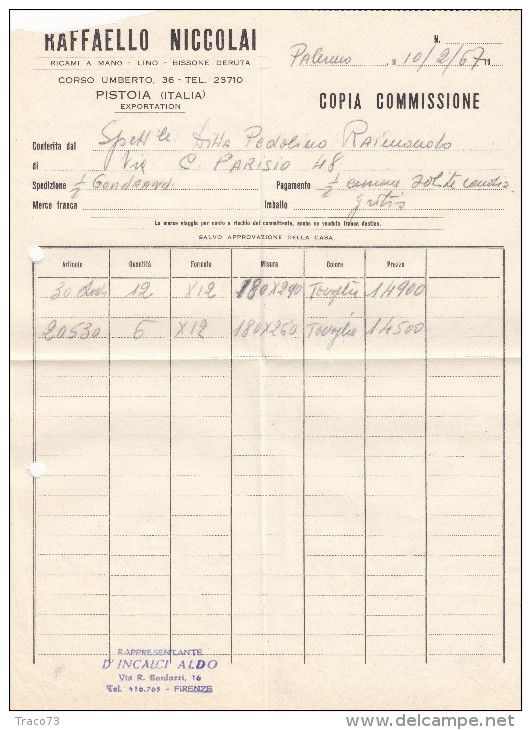 RAFFAELLO NICCOLAI
RICAMI A MANO - LINO - BISSONE DERUTA
CORSO UMBERTO, 36 - TEL. 23710
PISTOIA (ITALIA)
EXPORTATION
N.
Palermo 10/2/67 19
COPIA COMMISSIONE
Conferita dal Spett le Ditta Pedolino Raimondo
di Via C. PARISIO 48
Spedizione ½ GONDRAND Pagamento ½
Merce franca Imballo gratis
La merce viaggia per conto e rischio del committente, anche se venduta franco destino.
SALVO APPROVAZIONE DELLA CASA
Articolo Quantità Formato Misura Colore Prezzo
30 12 X12 180X290 Tovglia 14900
20530 6 X12 180X260 Tovglia 14500
RAPPRESENTANTE
D'INCALCI ALDO
Via R. Bardazzi, 16
Tel. 416.765 - FIRENZE
Traco73
delcampe.net